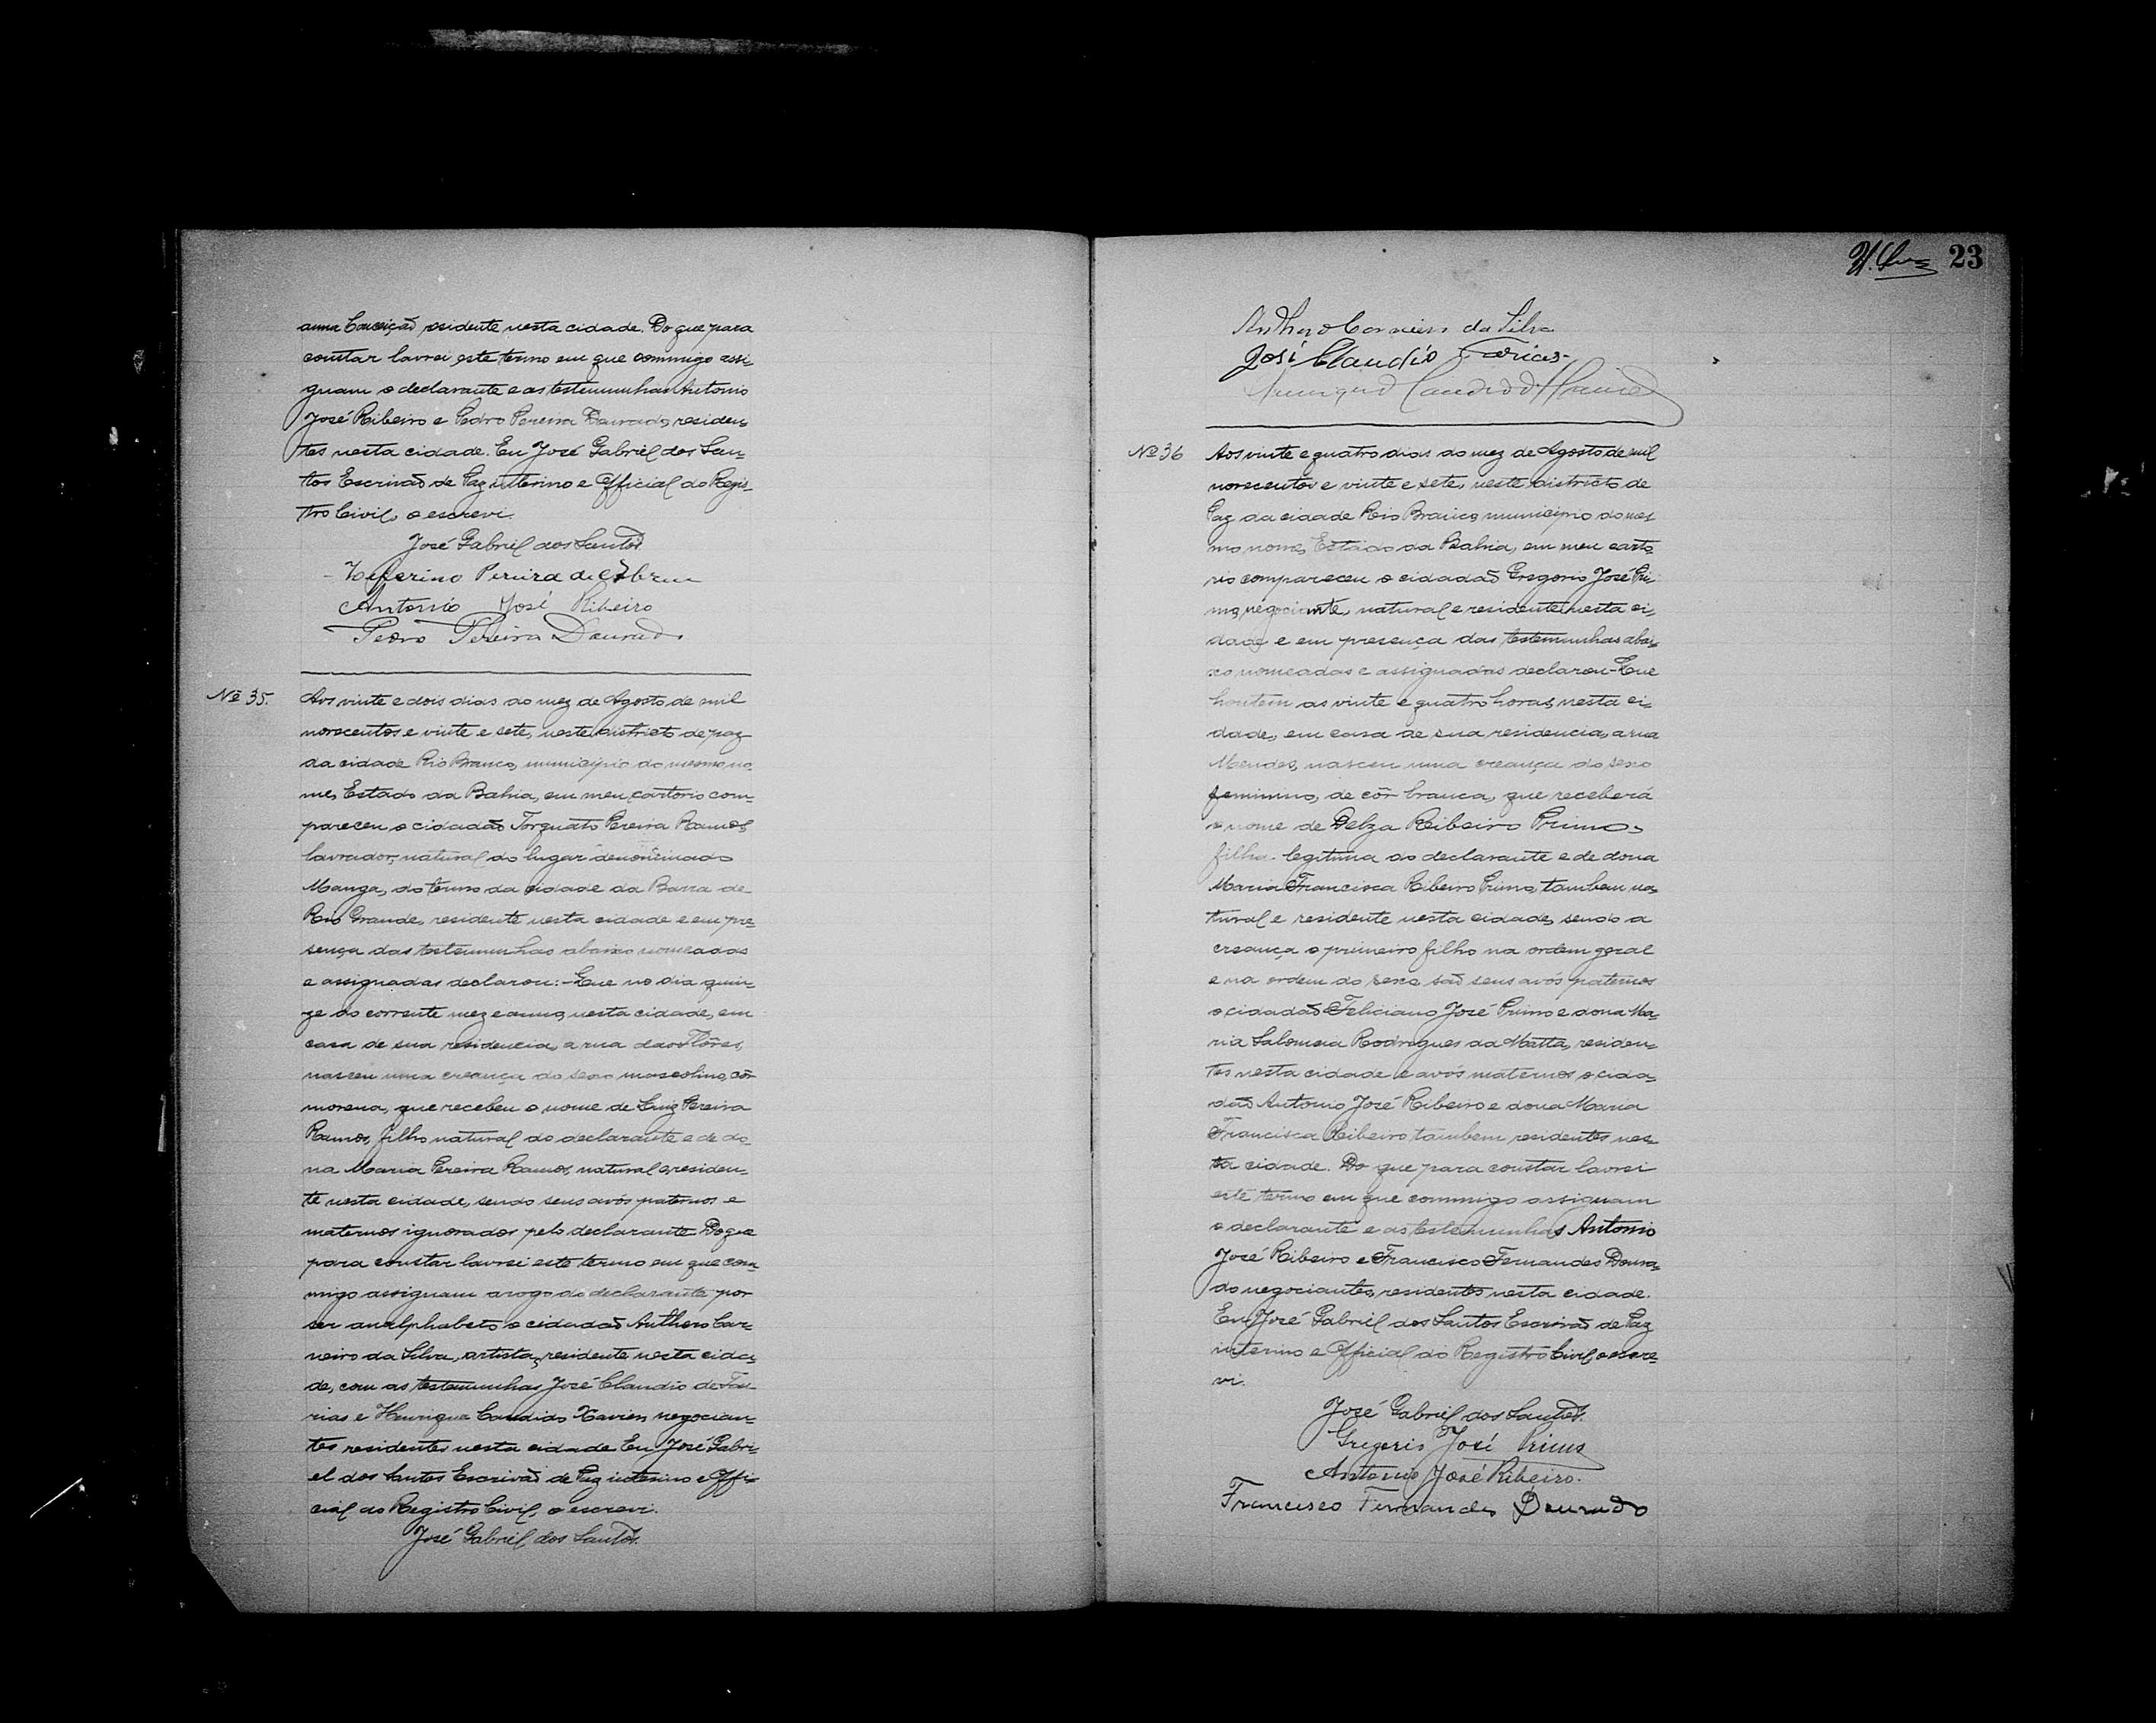 anna Conceição, residente nesta cidade. Do que para
constar lavrei este termo em que commigo assi-
gnam o declarante e as testemunhas Antonio
José Ribeiro e Pedro Pereira Dourado, residen-
tes nesta cidade. Eu José Gabriel dos San-
tos Escrivão de Paz interino e Official do Regis-
tro Civil, o escrevi.
José Gabriel dos Santos
Zeferino Pereira de Abreu
Antonio José Ribeiro
Pedro Pereira Dourado
Nº 35.
Aos vinte e dois dias do mez de Agosto de mil
novecentos e vinte e sete, neste districto de paz
da cidade Rio Branco, municipio do mesmo no-
me, Estado da Bahia, em meu cartorio com-
pareceu o cidadão Torquato Pereira Ramos,
lavrador, natural do lugar denominado
Manga, do termo da cidade da Barra de
Rio Grande, residente nesta cidade e em pre-
sença das testemunhas abaixo nomeadas
e assignadas declarou:- Que no dia quin-
ze do corrente mez e anno, nesta cidade, em
casa de sua residencia, a rua das Flôres,
nasceu uma creança do sexo mascolino, côr
morena, que recebeu o nome de Luiz Pereira
Ramos, filho natural do declarante e de do-
na Maria Pereira Ramos, natural e residen-
te nesta cidade, sendo seus avós paternos e
maternos ignorados pelo declarante. Do que
para constar lavrei este termo em que com-
migo assignam a rogo do declarante por
ser analphabeto o cidadão Anthero Car-
neiro da Silva, artista, residente nesta cida-
de, com as testemunhas José Claudio de Fa-
rias e Henrique Candido Xavier, negocian-
tes residentes nesta cidade. Eu José Gabri-
el dos Santos Escrivão de Paz interino e Offi-
cial do Registro Civil, o escrevi.
José Gabriel dos Santos.
23
Anthero Carneiro da Silva
José Claudio Farias-
Nº 36
Aos vinte e quatro dias do mez de Agosto de mil
novecentos e vinte e sete, neste districto de
Paz da cidade Rio Branco, municipio do mes-
mo nome, Estado da Bahia, em meu carto-
rio compareceu o cidadão Gregorio José Pri-
mo, negociante, natural e residente nesta ci-
dade e em presença das testemunhas abai-
xo nomeadas e assignadas declarou- Que
hontem as vinte e quatro horas, nesta ci-
dade, em casa de sua residencia, a rua
Mendes, nasceu uma creança do sexo
feminino, de côr branca, que receberá
o nome de Delza Ribeiro Primo,
filha legitima do declarante e de dona
Maria Francisca Ribeiro Primo, tambem na-
tural e residente nesta cidade, sendo a
creança o primeiro filho na ordem geral
e na ordem do sexo são seus avós paternos
o cidadão Feliciano José Primo e dona Ma-
ria Salomea Rodrigues da Matta, residen-
tes nesta cidade e avós maternos o cida-
dão Antonio José Ribeiro e dona Maria
Francisca Ribeiro tambem residentes nes-
ta cidade. Do que para constar lavrei
este termo em que commigo assignam
o declarante e as testemunhas Antonio
José Ribeiro e Francisco Fernandes Doura-
do negociantes, residentes nesta cidade.
Eu José Gabriel dos Santos Escrivão de Paz
interino e Official do Registro Civil, o escre-
vi.
José Gabriel dos Santos.
Gregorio José Primo
Antonio José Ribeiro.
Francisco Fernandes Dourado